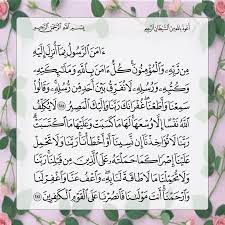 أعوذ بالله من الشيطان الرجيم بسم الله الرحمن الرحيم
ءَامَنَ ٱلرَّسُولُ بِمَآ أُنزِلَ إِلَيْهِ
مِن رَّبِّهِۦ وَٱلْمُؤْمِنُونَ كُلٌّ ءَامَنَ بِٱللَّهِ وَمَلَٰٓئِكَتِهِۦ
وَكُتُبِهِۦ وَرُسُلِهِۦ لَا نُفَرِّقُ بَيْنَ أَحَدٍ مِّن رُّسُلِهِۦ وَقَالُوا۟
سَمِعْنَا وَأَطَعْنَا غُفْرَانَكَ رَبَّنَا وَإِلَيْكَ ٱلْمَصِيرُ ٢٨٥ لَا يُكَلِّفُ
ٱللَّهُ نَفْسًا إِلَّا وُسْعَهَا لَهَا مَا كَسَبَتْ وَعَلَيْهَا مَا ٱكْتَسَبَتْ
رَبَّنَا لَا تُؤَاخِذْنَآ إِن نَّسِينَآ أَوْ أَخْطَأْنَا رَبَّنَا وَلَا تَحْمِلْ
عَلَيْنَآ إِصْرًا كَمَا حَمَلْتَهُۥ عَلَى ٱلَّذِينَ مِن قَبْلِنَا رَبَّنَا
وَلَا تُحَمِّلْنَا مَا لَا طَاقَةَ لَنَا بِهِۦ وَٱعْفُ عَنَّا وَٱغْفِرْ لَنَا
وَٱرْحَمْنَآ أَنتَ مَوْلَىٰنَا فَٱنصُرْنَا عَلَى ٱلْقَوْمِ ٱلْكَٰفِرِينَ ٢٨٦